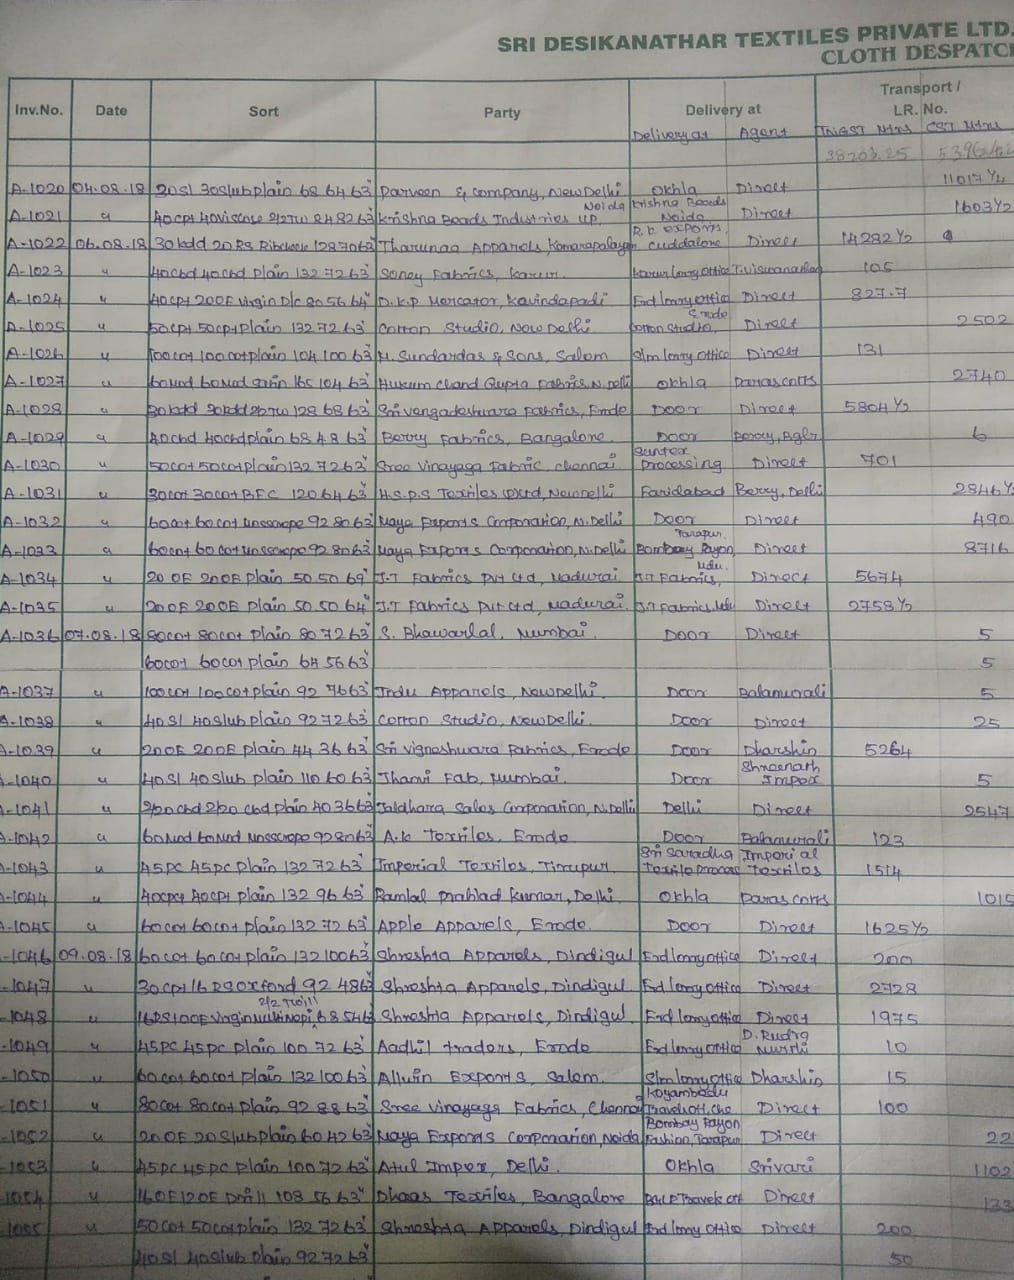 SRI DESIKANATHAR TEXTILES PRIVATE LTD.
CLOTH DESPATC
Inv.No. Date Sort Party Delivery at Transport / LR. No.
Delivery at Agent TNGST Mtrs CST Mtrs
38203.25
A-1020 04.08.18 30Sl 30Slub plain 68 64 63" Parveen & company, New Delhi Okhla Direct 11017½
A-1021 " 40cpt 40viscose 2/2TW 84 82 63" Krishna Beads Industries UP, Noida Krishna Beads Noida Direct 1603½
A-1022 06.08.18 30kdd 20 RS 128 70 63" Tharunaa Apparels, Komarapalayam R.K exports, cuddalore Direct 14282½
A-1023 " 40cbd 40cbd plain 132 72 63" Soney Fabrics, Karur. Karur lorry office T.Viswanathan 105
A-1024 " 40cpt 20OE virgin D/c 80 56 64" D.K.P Mercator, Kavindapadi Erd lorry office Direct 827.7
A-1025 " 50cpt 50cpt plain 132 72 63" Cotton Studio, New Delhi. Cotton Studio, Erode Direct 2502
A-1026 " 100cot 100cot plain 104 100 63" M. Sundardas & Sons, Salem Slm lorry office Direct 131
A-1027 " 60Mod 60Mod Satin 165 104 63" Hukum Chand Gupta Fabrics, N.Delhi Okhla Parascorts 2740
A-1028 " 30kdd 30kdd 2/2TW 128 68 63" Sri Vengadeshwara Fabrics, Erode Door Direct 5804½
A-1029 " 40cbd 40cbd plain 68 48 63" Berry Fabrics, Bangalore. Door Berry, Bglr 6
A-1030 " 50cot 50cot plain 132 72 63" Sree Vinayaga Fabric, Chennai Suntex Processing Direct 701
A-1031 " 30cot 30cot BFC 120 64 63" H.S.P.S Textiles (P)Ltd, New Delhi Faridabad Berry, Delhi 2846½
A-1032 " 60cot 60cot 92 80 63" Maya Exports Corporation, N.Delhi Door Direct 490
A-1033 " 60cot 60cot 92 80 63" Maya Exports Corporation, N.Delhi Bombay Rayon, Tarapur. Direct 8716
A-1034 " 20 OE 20OE Plain 50 50 69" J.T Fabrics Pvt Ltd, Madurai J.T Fabrics, Mdu. Direct 5674
A-1035 " 20OE 20OE Plain 50 50 64" J.T Fabrics Pvt Ltd, Madurai. J.T Fabrics, Mdu Direct 2758½
A-1036 07.08.18 80cot 80cot Plain 80 72 63" S. Bhawarlal, Mumbai. Door Direct 5
60cot 60cot Plain 64 56 63" 5
A-1037 " 100cot 100cot Plain 92 76 63" Indu Apparels, New Delhi. Door Balamurali 5
A-1038 " 40Sl 40Slub Plain 92 72 63" Cotton Studio, New Delhi. Door Direct 25
A-1039 " 20OE 20OE Plain 44 36 63" Sri Vigneshwara Fabrics, Erode Door Dharshin 5264
A-1040 " 40Sl 40Slub Plain 110 60 63" Jhanvi Fab, Mumbai. Door Shreenath Impex 5
A-1041 " 2/20cbd 2/20 cbd Plain 40 36 63" Jaldhara Sales Corporation, N.Delhi Delhi Direct 2547
A-1042 " 60Mod 60Mod 92 80 63" A.K Textiles, Erode Door Balamurali 123
A-1043 " 45PC 45PC Plain 132 72 63" Imperial Textiles, Tirupur. Sri Saradha Textile process Imperial Textiles 1514
A-1044 " 40cpt 40cpt Plain 132 96 63" Ramlal Prahlad Kumar, Delhi. Okhla Parascorts 1015
A-1045 " 60cot 60cot Plain 132 72 63" Apple Apparels, Erode. Door Direct 1625½
-1046 09.08.18 60cot 60cot Plain 132 100 63" Shreshta Apparels, Dindigul Erd lorry office Direct 200
-1047 " 30cpt 16 RS Oxford 92 48 63" Shreshta Apparels, Dindigul Erd lorry office Direct 2728
-1048 " 16RS 10OE Virgin Multi Nopi 2/2 Twill 68 54 63" Shreshta Apparels, Dindigul. Erd lorry office Direct 1975
-1049 " 45PC 45PC Plain 100 72 63" Aadhil traders, Erode Erd lorry office D. Rudra Murthi 10
-1050 " 60cot 60cot Plain 132 100 63" Allwin Exports, Salem. Slm lorry office Dharshin 15
-1051 " 80cot 80cot Plain 92 88 63" Sree Vinayaga Fabrics, Chennai Koyambedu Travels off, Che Direct 100
-1052 " 20OE 20Slub Plain 60 42 63" Maya Exports Corporation, Noida Bombay Rayon Fashion, Tarapur Direct 22
-1053 " 45PC 45PC Plain 100 72 63" Atul Impex, Delhi. Okhla Srivari 1102
-1054 " 16OE 12OE Drill 108 56 63" Dhaas Textiles, Bangalore Direct 133
-1055 " 50cot 50cot Plain 132 72 63" Shreshta Apparels, Dindigul Erd lorry office Direct 200
40Sl 40Slub Plain 92 72 63" 50